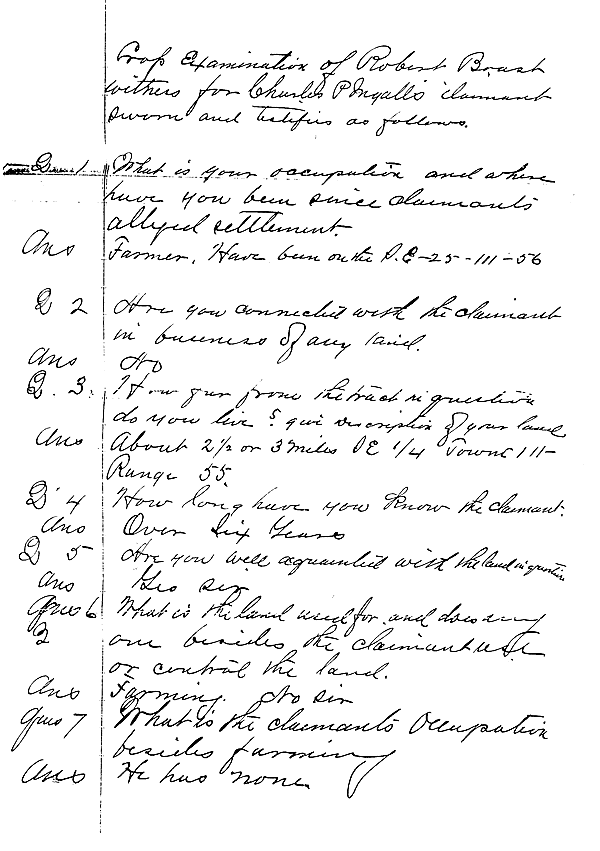 Cross Examination of Robert Boast
witness for Charles P Ingalls claimant
sworn and testifies as follows.
Ques 1 What is your occupation and where
have you been since claimants
alleged settlement.
Ans Farmer. Have been on the S.E-25-111-56
Q 2 Are you connected with the claimant
in business of any kind.
Ans No
Q. 3. How far from the tract in question
do you live ? give description of your land
Ans About 2 1/2 or 3 miles SE 1/4 Towns 111-
Range 55.
Q 4 How long have you know the claimant.
Ans Over Six Years
Q 5 Are you well aquainted with the land in question
Ans Yes sir
Ques 6 What is the land used for and does any
one besides the claimant use
or control the land.
Ans Farming. No sir
Ques 7 What is the claimants Occupation
besides farming
Ans He has none.